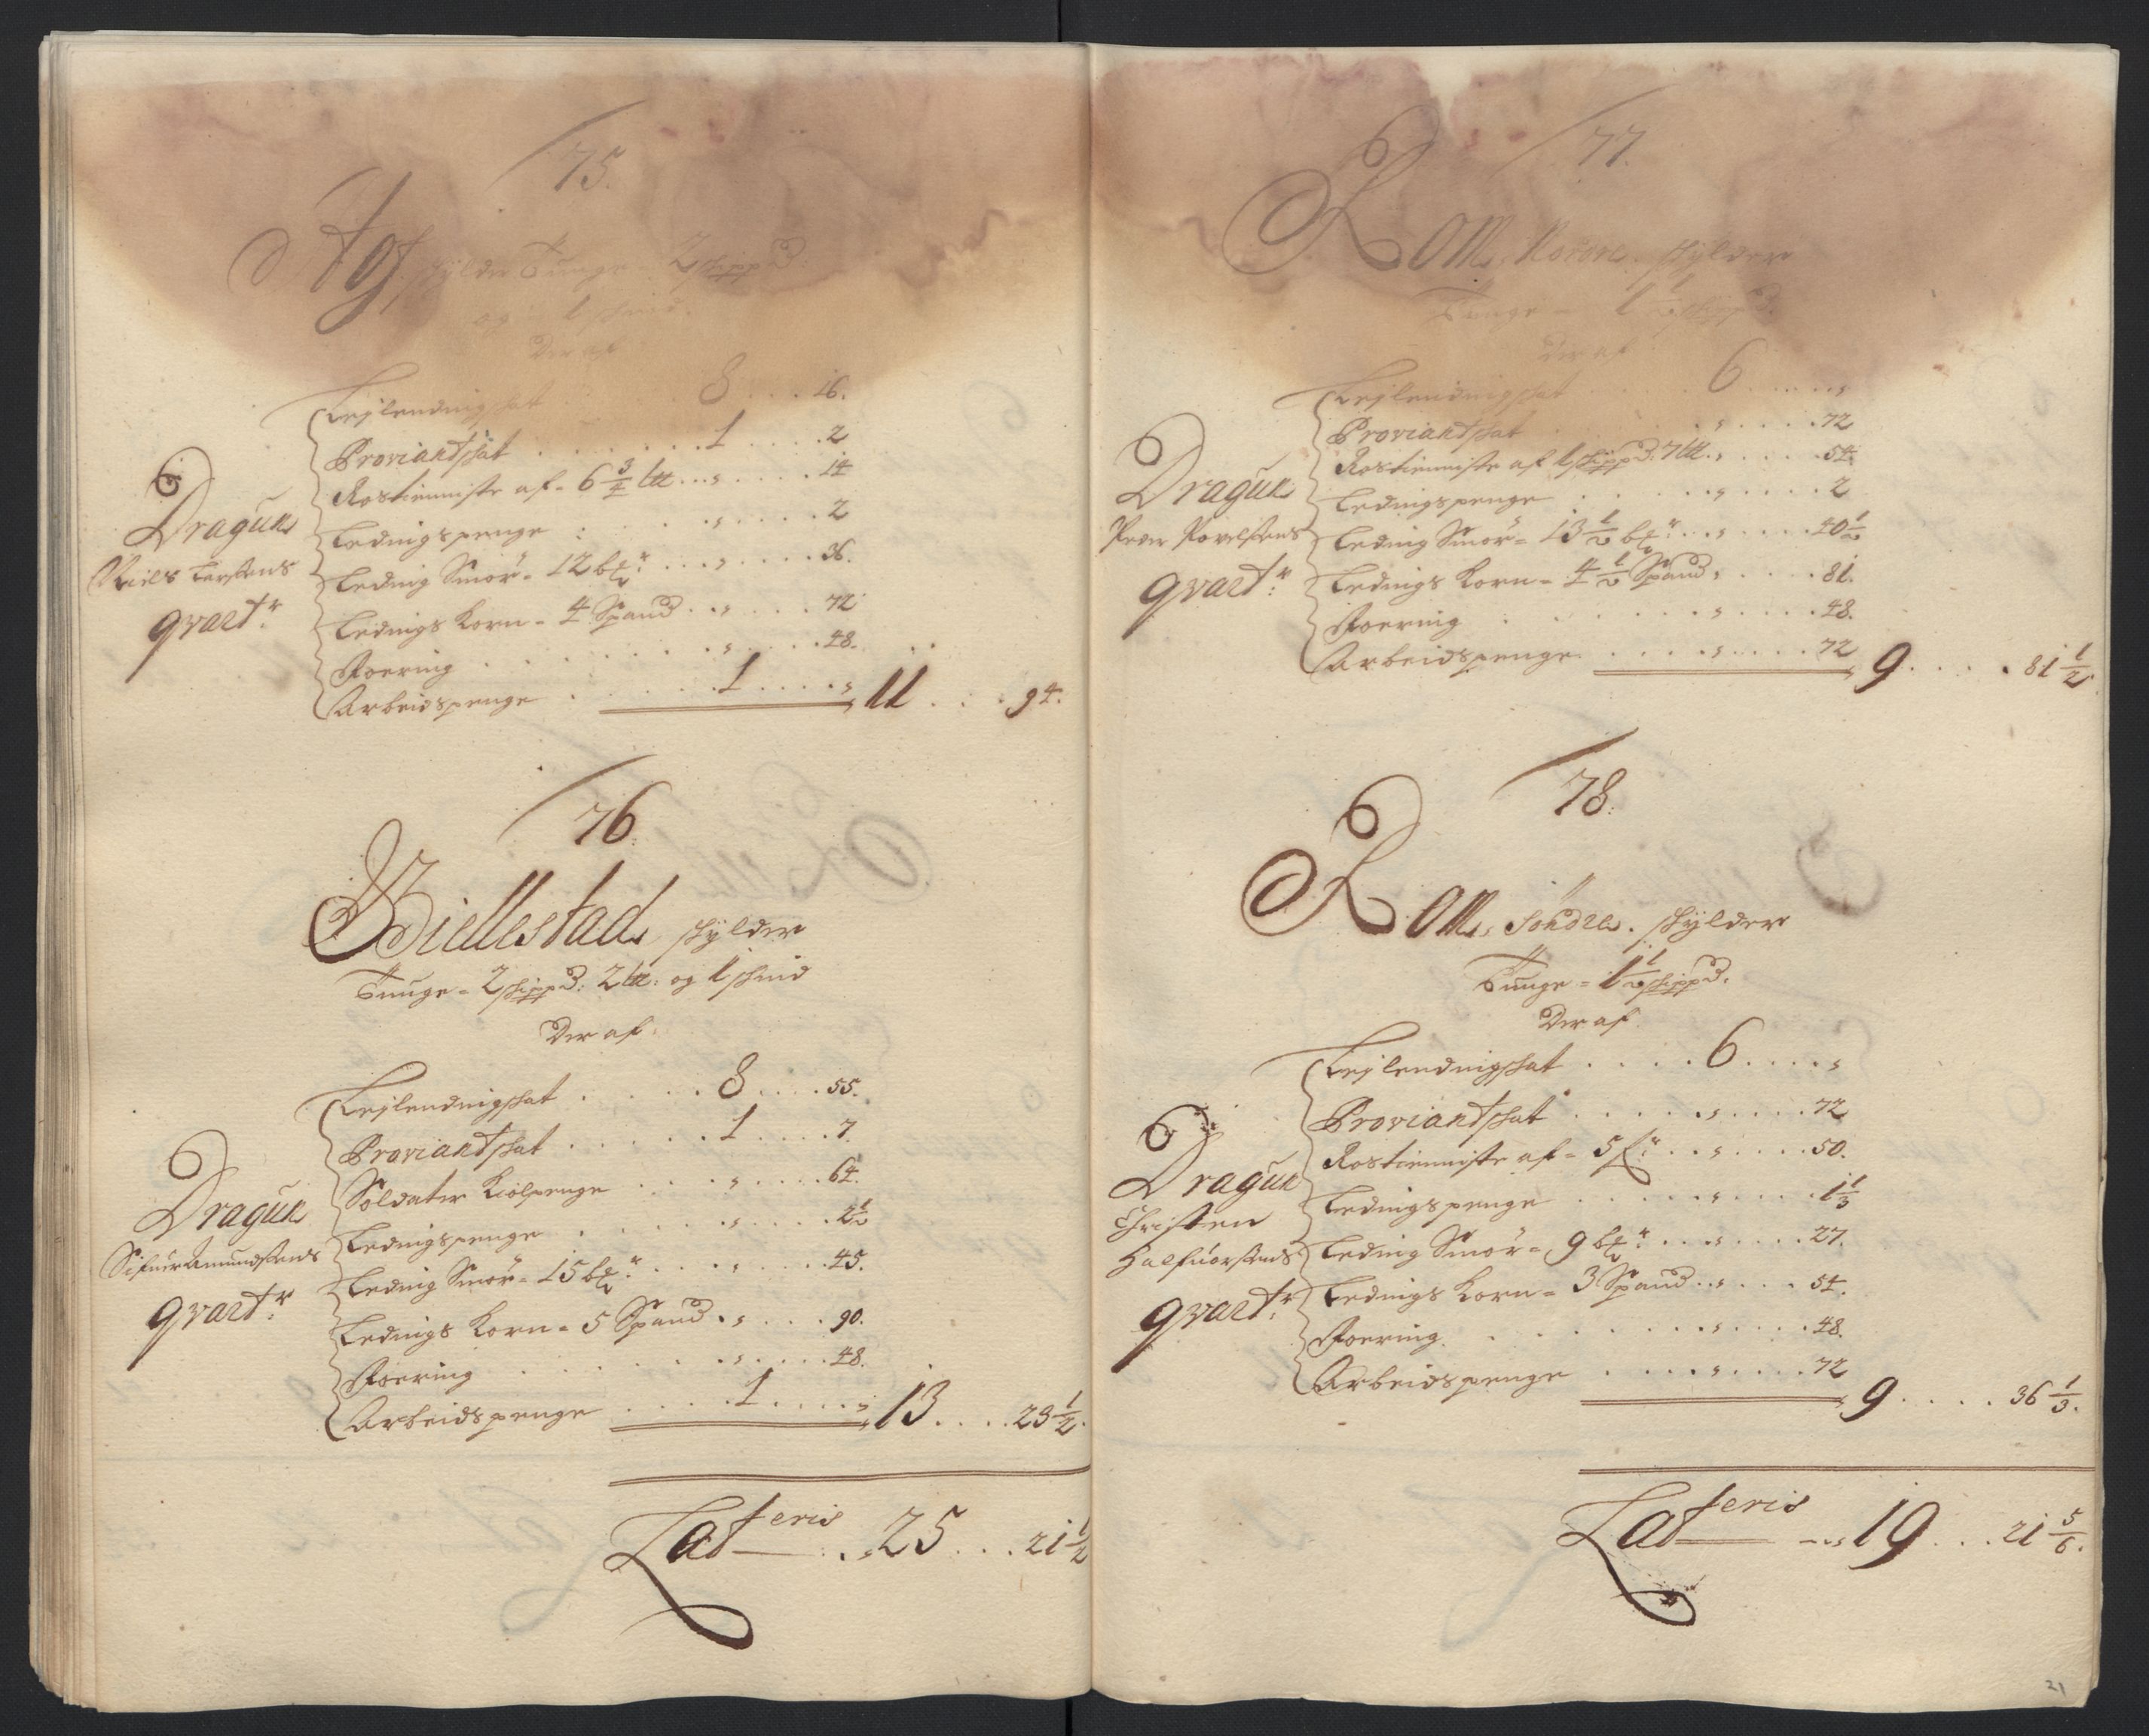 75.
Aas, skylder Tunge - 2 skippd:
og - 1 schind.
Der af
Leylendingschat . . . 8 . . . 16.
Proviantschat . . . . . . 1 . . . . 2
Rostienniste af - 6 3/4 l℔ . . . „ . . . . 14
Ledingspenge . . . . . „ . . . . 2
Leding Smör - 12 b℔r: . . . „ . . . . 36.
Ledings Korn - 4 Spand . . „ . . . . 72
Foering . . . . . . . „ . . . 48.
Arbeidspenge . . . . . . 1 . . . . „ 11 . . . 94.
Dragun
Niels Larsens
qvartr:
76.
Biellestad, skylder
Tunge - 2 skippd: 2 l℔: og 1 schind
Der af:
Leylendingschat . . . . . 8 . . . . 55.
Proviantschat . . . . . . 1 . . . . 7.
Soldater Kiolpenge . . . . „ . . . . 64.
Ledingspenge . . . . . . „ . . . . 2 1/2
Leding Smör - 15 b℔r: . . . . „ . . . . 45.
Ledings Korn - 5 Spand . „ . . . . 90.
Foering . . . . . . . „ . . . . 48.
Arbeidspenge . . . . . 1 . . . . „ 13 . . . . 23 1/2.
Dragun
Sifuer Amundsens
qvartr:
Lateris . . „ 25 . . . 21 1/2
77.
Rom, Nordre. skylder
Tunge - 1 1/2 skippd.
Der af
Leylendingschat . . . . 6 . . . . „
Proviantschat . . . . . „ . . . . 72
Rostienniste af 1 skippd: 7 l℔. „ . . . . 54.
Ledingspenge . . . . . „ . . . . 2
Leding Smör - 13 1/2 b℔r: . . . „ . . . . 40 1/2
Ledings Korn - 4 1/2 Spand „ . . . . 81.
Foering . . . . . . . „ . . . . 48.
Arbeidspenge . . . . . „ . . . . 72 „ 9 . . . . 81 1/2.
Dragun
Peder Povelsens
qvartr:
78.
Rom, Söndre. skylder
Tunge - 1 1/2 skippd.
Der af.
Leylendingschat . . . . 6 . . . . „
Proviantschat . . . . . „ . . . . 72
Rostienniste af - 5 fr: . . „ . . . . 50.
Ledingspenge . . . . . „ . . . . 1 1/3
Leding Smör - 9 b℔r: . . . „ . . . . 27.
Ledings Korn - 3 Spand . . „ . . . 54.
Foering . . . . . . . „ . . . . 48.
Arbeidspenge . . . . . „ . . . . 72 „ 9 . . . . 36 1/3.
Dragun
Christen
Halfuorsens
qvartr:
Lateris - . „ 19 . . . 21 5/6.
21